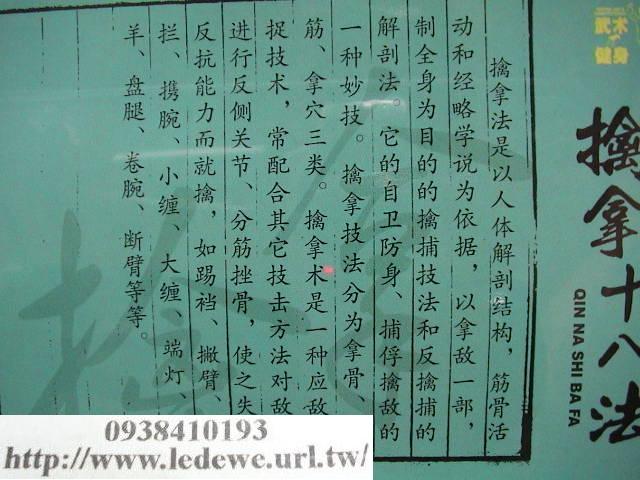 武术
健身
擒拿十八法
QIN NA SHI BA FA
擒拿法是以人体解剖结构，筋骨活
动和经略学说为依据，以拿敌一部，
制全身为目的的擒捕技法和反擒捕的
解剖法。它的自卫防身、捕俘擒敌的
一种妙技。擒拿技法分为拿骨、
筋、拿穴三类。擒拿术是一种应敌
捉技术，常配合其它技击方法对敌
进行反侧关节、分筋挫骨，使之失
反抗能力而就擒，如踢裆、撇臂、
拦、携腕、小缠、大缠、端灯、
羊、盘腿、卷腕、断臂等等。
擒拿
0938410193
http://www.ledewe.url.tw/